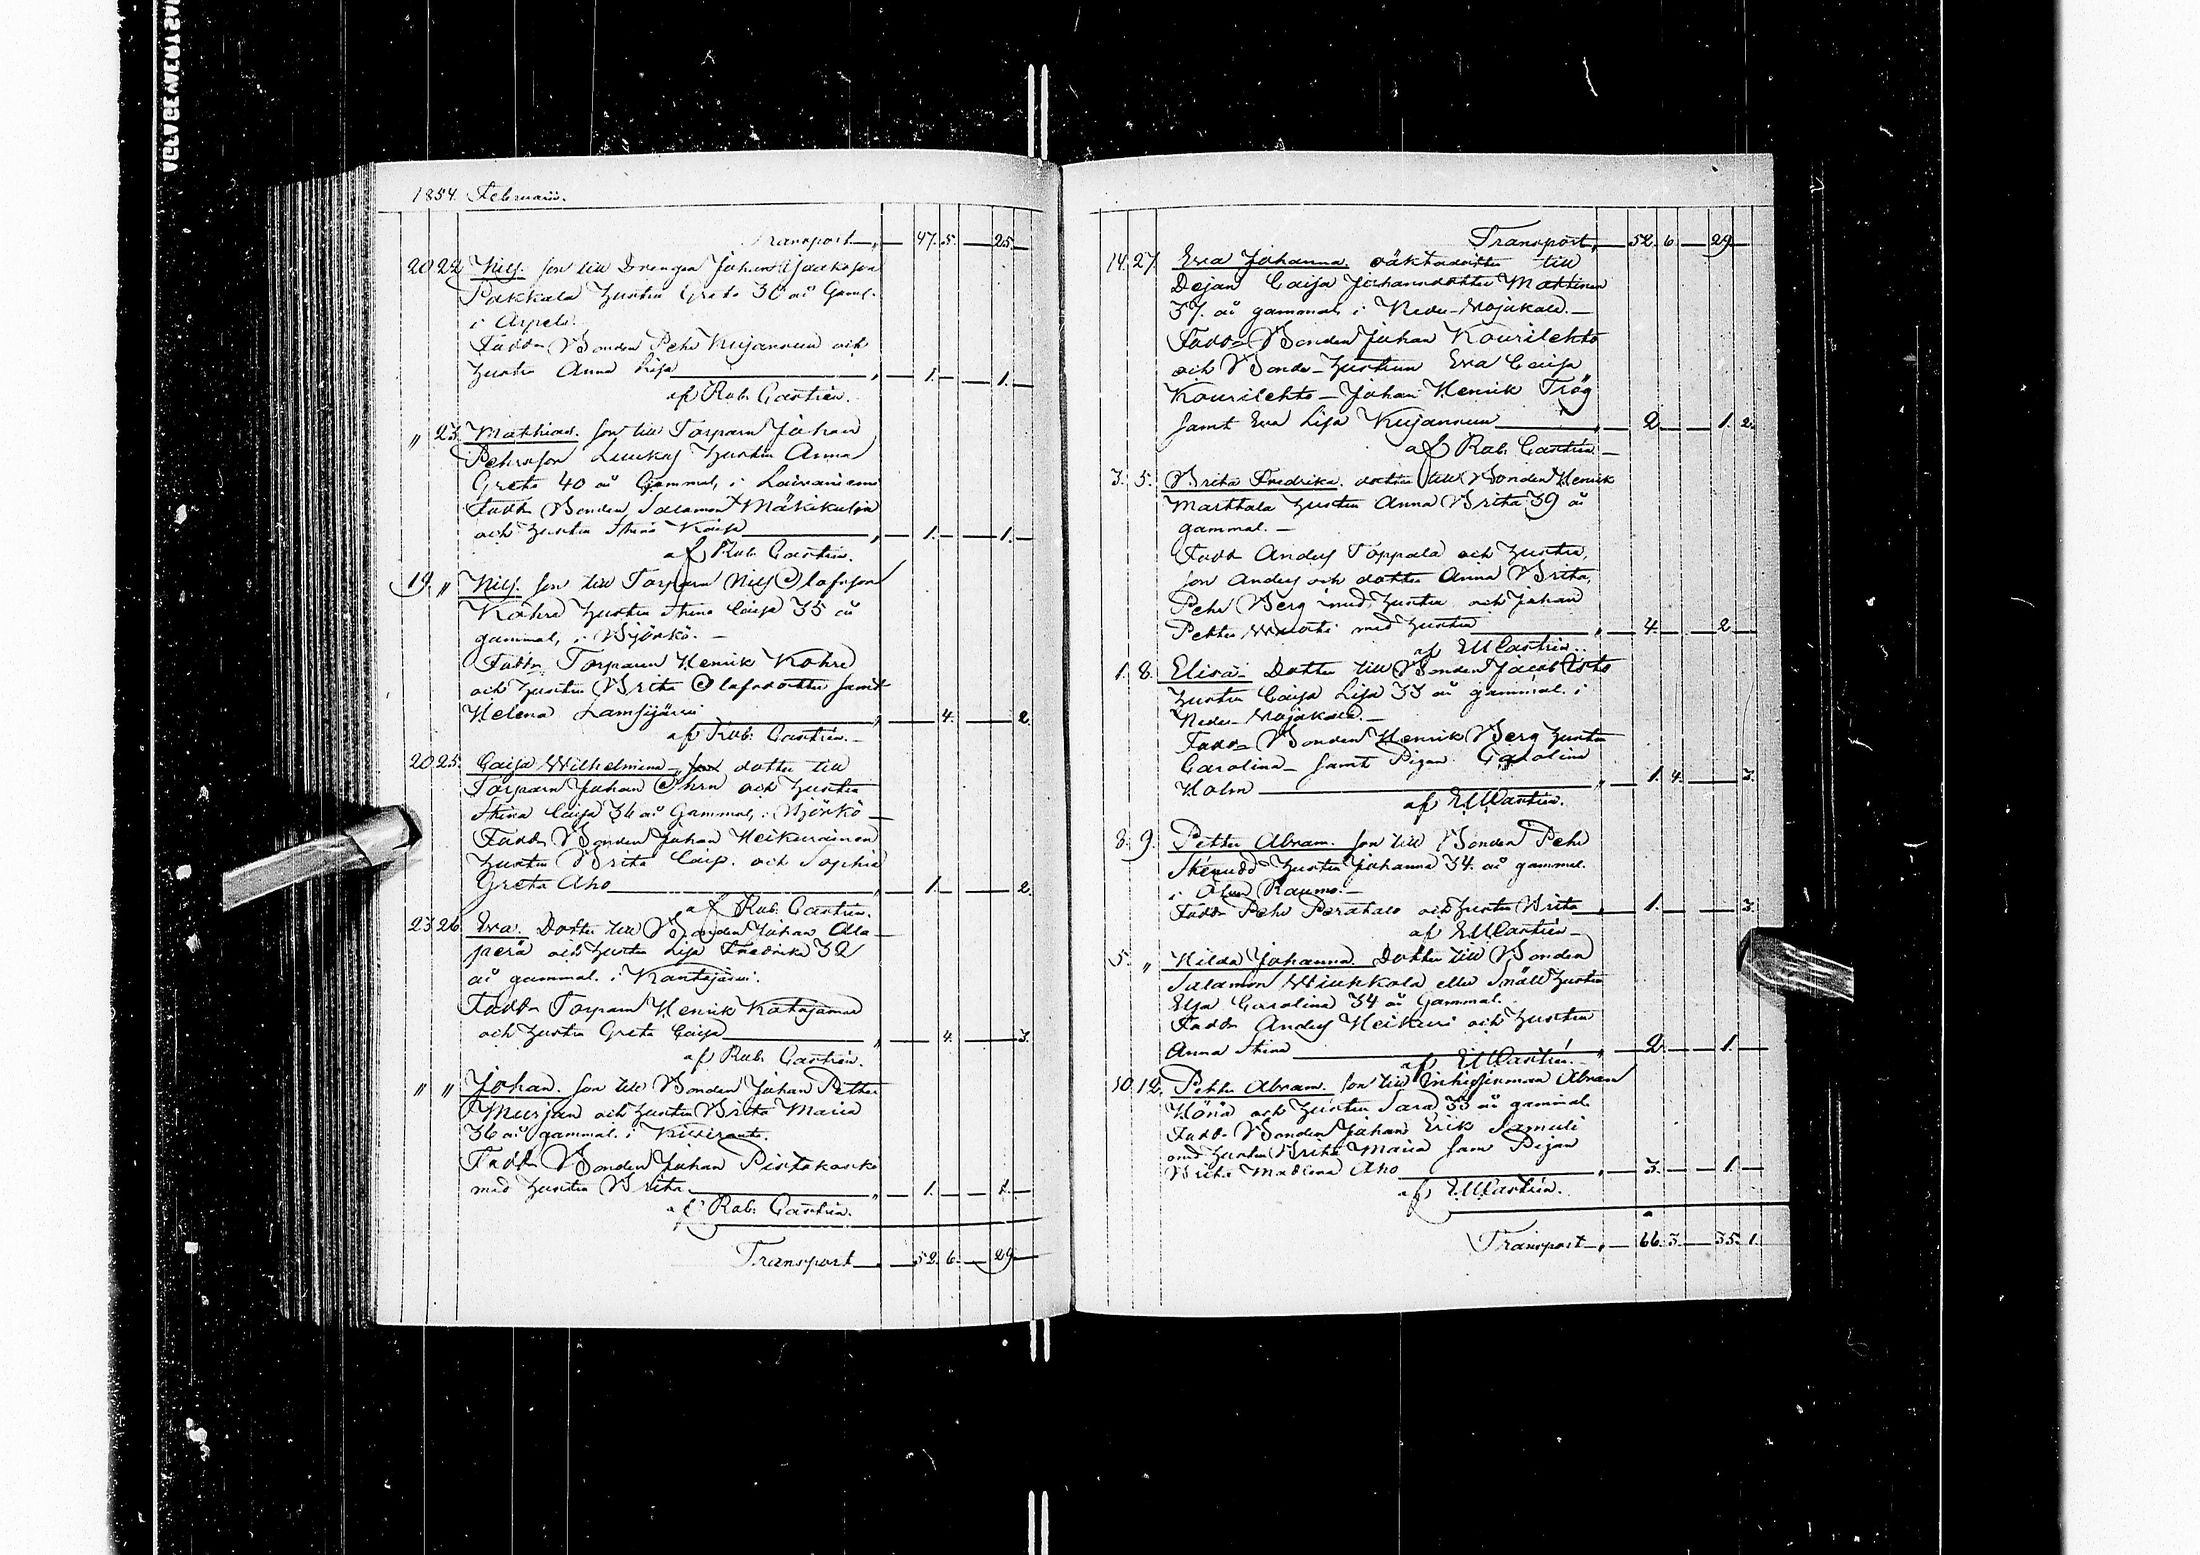 1854. Februarii.
Transport 47. 5. 25.
20 22 Nils. son till Drengen Johan
Pakkala hustru Greta 36 år Gaml.
i Arpela.
Fadd. Bonden Pehr Kujansuu och
hustru Anna Lisa 1. 1.
af Rab. Castrén.
" 23. Mathias. son till Torparn Johan
Pehrsson hustru Anna
Greta 40 år Gammal, i
Fadd. Bonden Salamon Mäkikulja
och hustru Stina Kaisa 1. 1.
af Rab. Castrén.
19. " Nils. son till Torparn Nils Olofsson
hustru Stina Caisa 35 år
gammal, i Björkö.
Fadd. Torparen Henrik
och hustru Brita Olofsdotter samt
Helena 4. 2.
af Rab. Castrén.
20 25. Caisa Wilhelmina dotter till
Torparn Johan och hustru
Stina Caisa 36 år Gammal, i Björkö
Fadd. Bonden Johan Heikurainen
hustru Brita Caisa. och Sophia
Greta Aho 1. 2.
af Rab. Castrén.
23 26. Eva. Dotter till Bonden Johan Alla-
perä och hustru Lisa Fredrika 32
år gammal. i Kantojärvi.
Fadd. Torparn Henrik Katajamaa
och hustru Greta Caisa 4. 3.
af Rab. Castrén.
" " Johan. son till Bonden Johan Petter
och hustru Brita Maria
36 år gammal. i Kiviranta.
Fadd. Bonden Johan Pirttikoski
med hustru Brita 1. 1.
af Rab. Castrén.
Transport 52. 6. 29.
Transport 52. 6. 29
14. 27. Eva Johanna, oäktadotter till
Dejan Caisa Johansdotter Mattinen
37. år gammal, i Neder-Wojakala.
Fadd. Bonden Johan Kourilehto
och Bonde-hustrun Eva Caisa
Kourilehto Johan Henrik Trög
samt Eva Lisa Kujansuu 2 1. 2.
af Rab. Castrén.
3. 5. Brita Fredrika. dotter till Bonden Henrik
Marttala hustru Anna Brita 39 år
gammal.
Fadd. Anders Toppala och hustru,
son Anders och dotter Anna Brita,
Pehr Berg med hustru och Johan
Petter med hustru 4. 2
af EMCastrén.
1. 8. Elisa Dotter till Bonden Jacob
hustru Caisa Lisa 33 år gammal. i
Neder-Wojakala.
Fadd. Bonden Henrik Berg hustru
Carolina samt Pigan Carolina
Holm 1. 4. 3.
af EMCastrén.
8. 9. Petter Abram. son till Bonden Pehr
hustru Johanna 34. år gammal.
i Raumo.
Fadd. Pehr och hustru Brita 1. 3.
af EMCastrén
5. " Hilda Johanna. Dotter till Bonden
Salamon eller Snäll hustru
Elsa Carolina 34 år Gammal.
Fadd. Anders Heikuri och hustru
Anna Stina 2. 1.
af EMCastrén.
10. 12. Petter Abram. son till Inhysinman Abram
och hustru Sara 33 år gammal.
Fadd. Bonden Johan Erik Samuli
med hustru Brita Maria sam Pigan
Brita Madlena Aho 3. 1.
af EMCastrén.
Transport 66. 3. 35. 1.